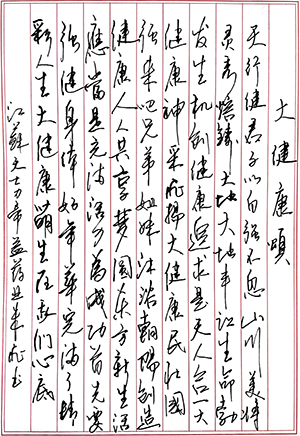 大健康颂
天行健君子以自强不息山川美将
灵秀熔铸大地大地丰让生命勃
发生机创健康追求是天人合一大
健康神采飞扬大健康民壮国
强来吧兄弟姐妹沐浴朝阳创造
健康人人共享梦圆东方新生活
应当是充满活力为成功首先要
强健身体好年华完满了精
彩人生大健康萌生在我们心底
江苏